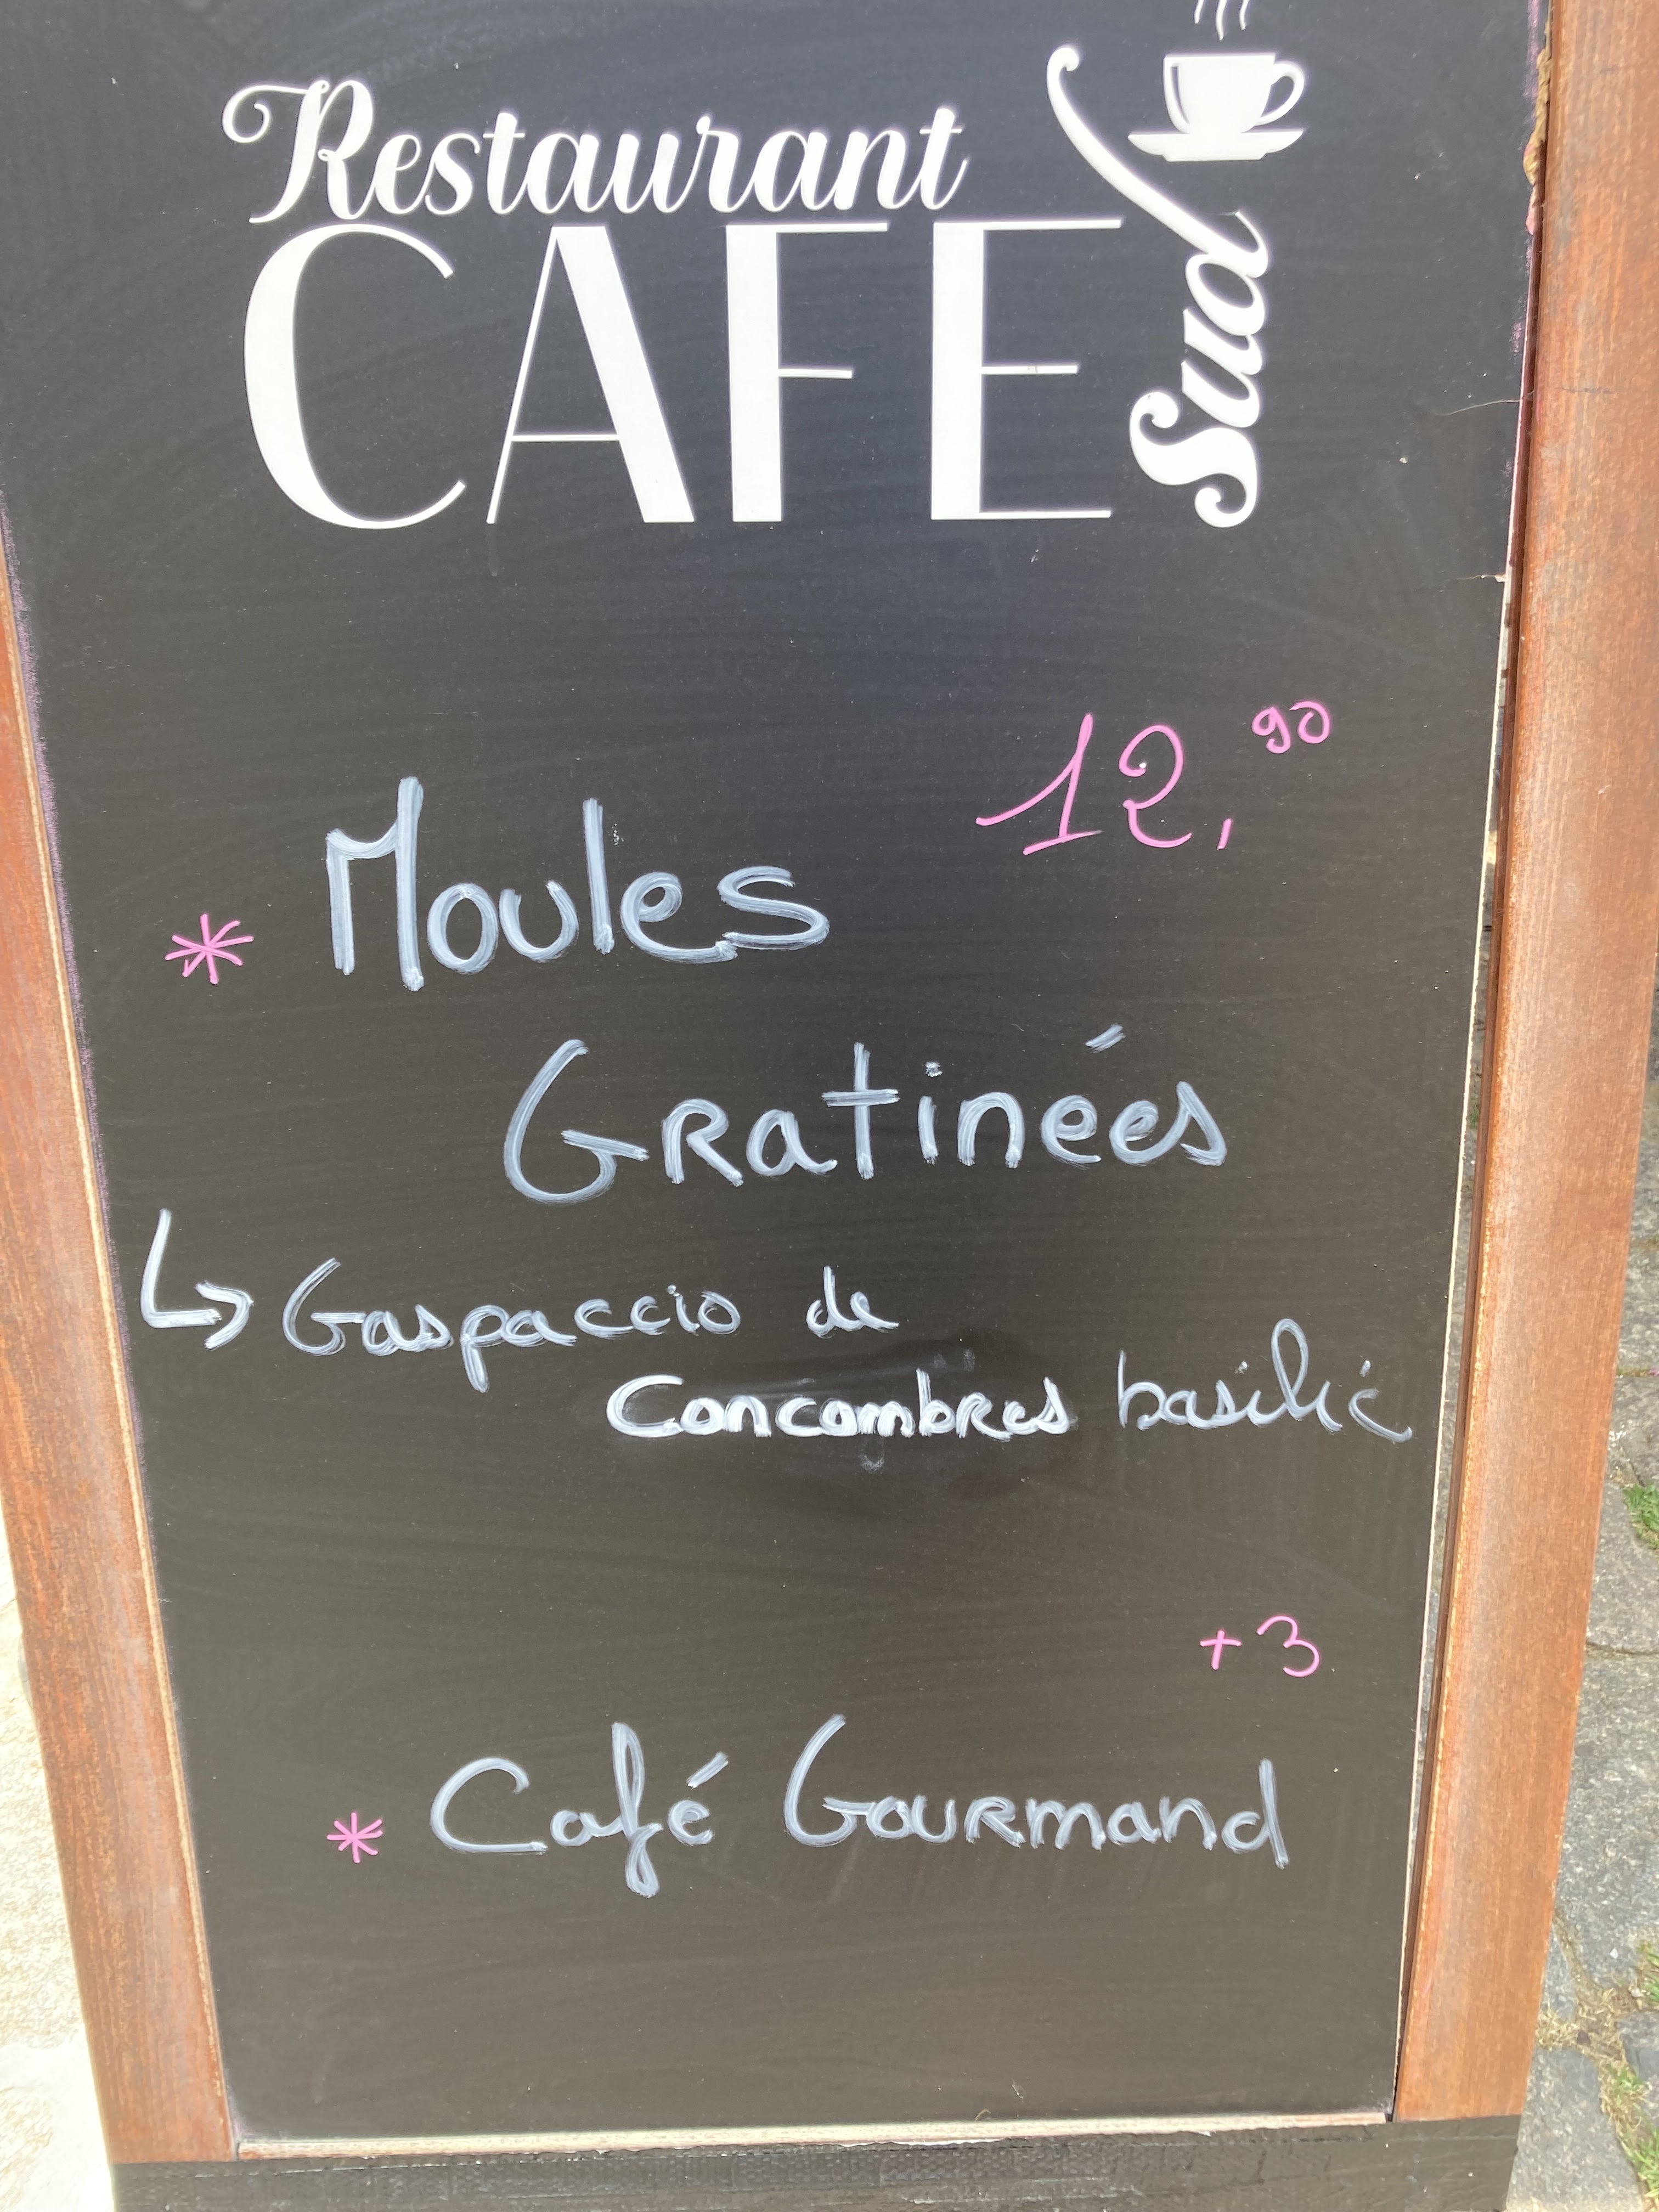 Restaurant
CAFE Sud
12,90
* Moules
Gratinées
↳ Gaspaccio de
Concombres basilic
+3
* Café Gourmand